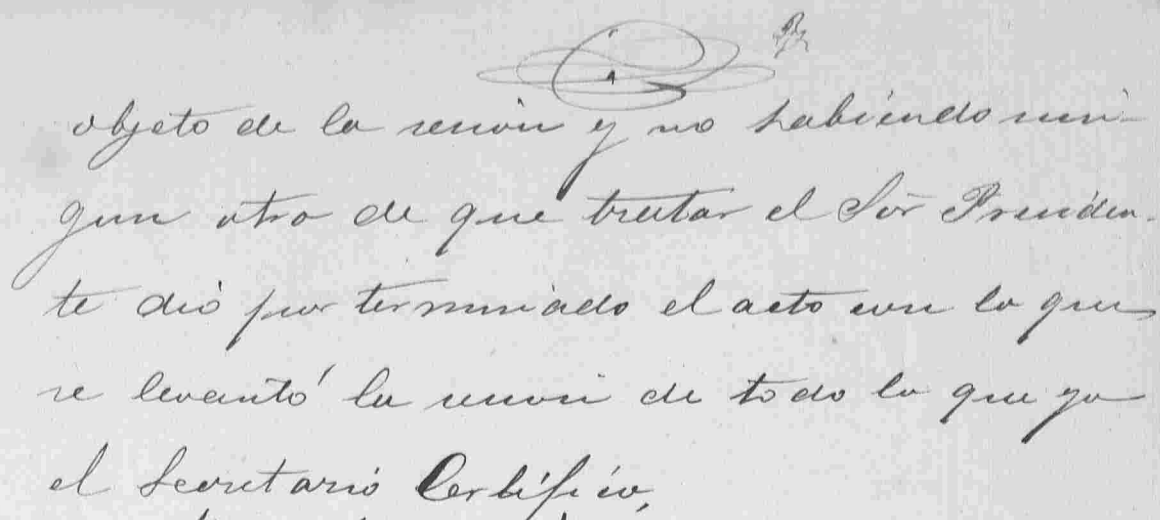 objeto de la sesion y no habiendo nin-
gun otro de que tratar el Sor Presiden-
te dió por terminado el acto con lo que
se levantó la sesion de todo lo que yo
el Secretario Certifico,